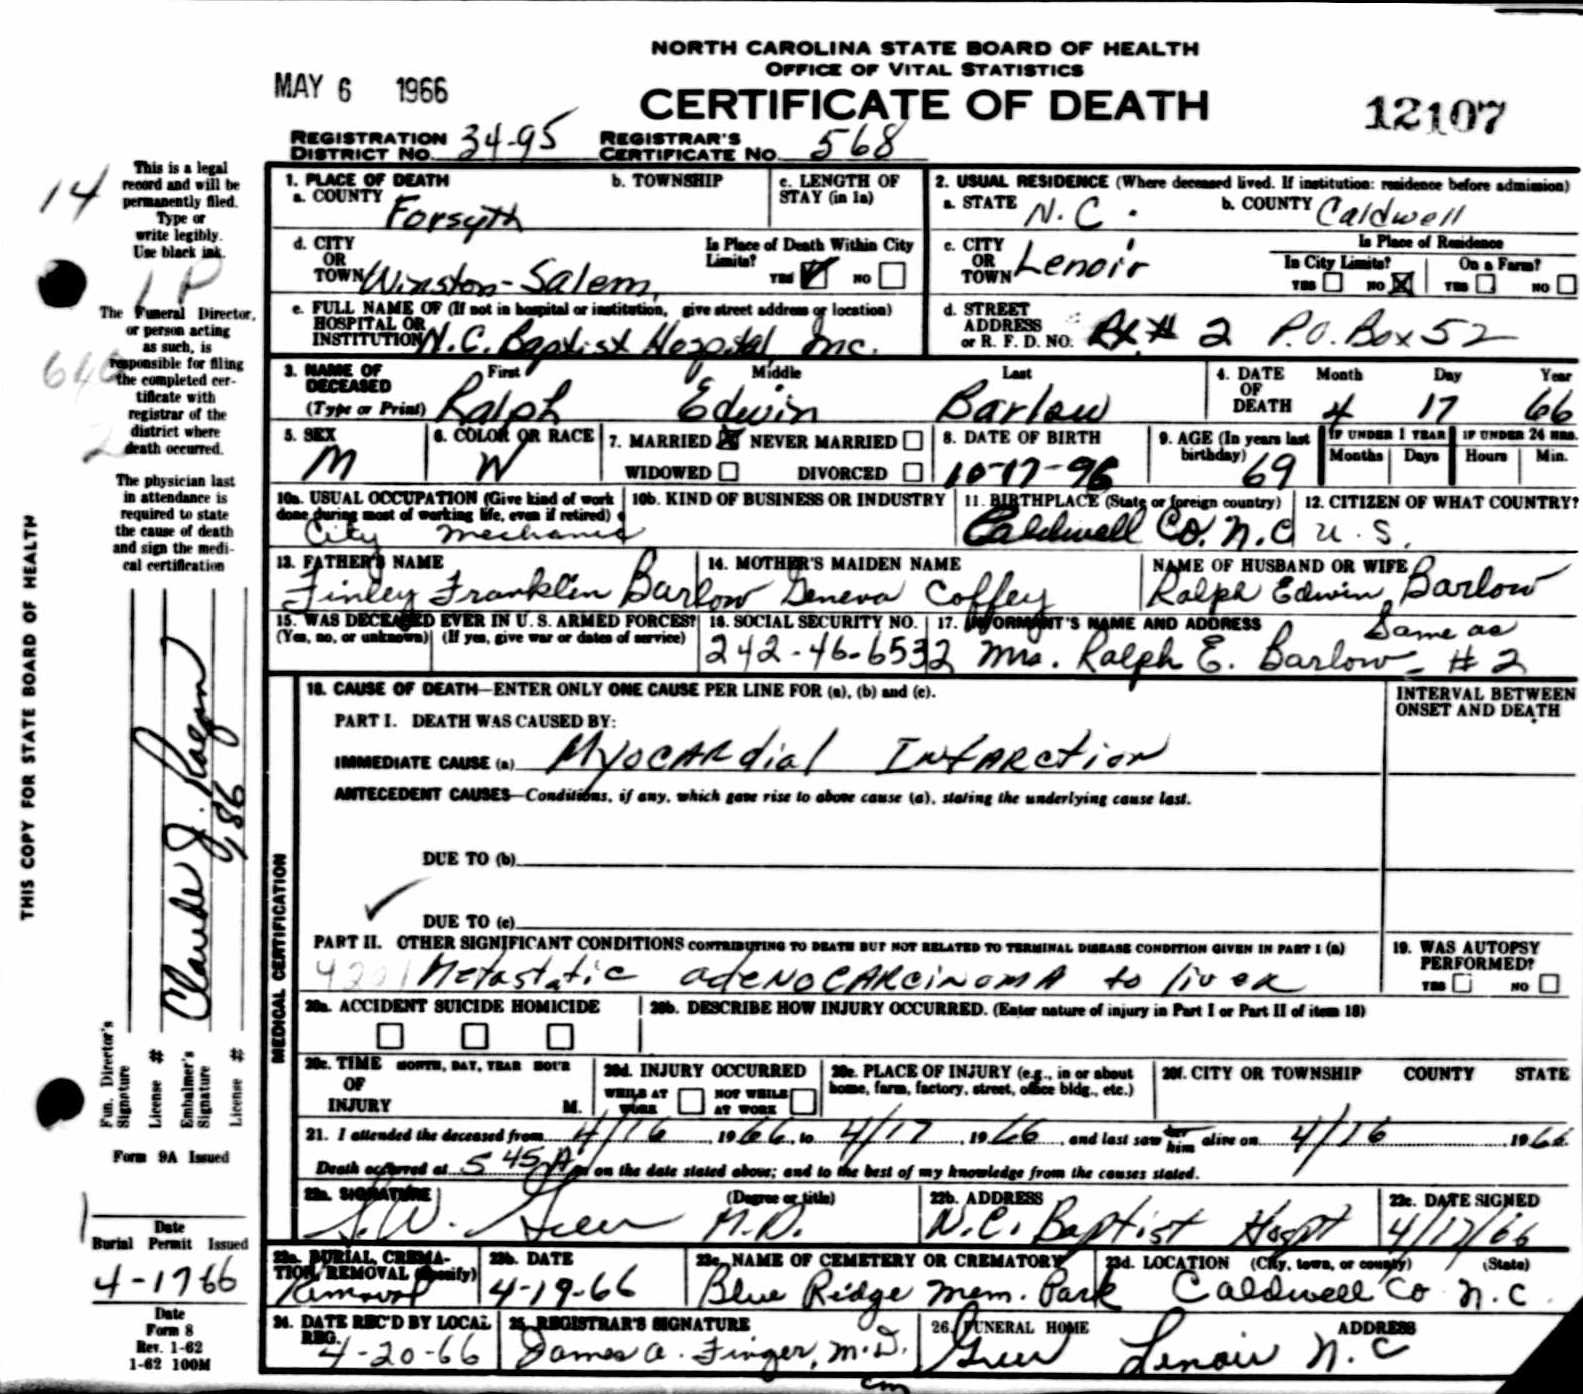 NORTH CAROLINA STATE BOARD OF HEALTH
OFFICE OF VITAL STATISTICS
MAY 6 1966
CERTIFICATE OF DEATH
12107
REGISTRATION DISTRICT NO. 34-95 REGISTRAR'S CERTIFICATE NO. 568
14
This is a legal
record and will be
permanently filed.
Type or
write legibly.
Use black ink.
The Funeral Director,
or person acting
as such, is
responsible for filing
the completed cer-
tificate with
registrar of the
district where
death occurred.
The physician last
in attendance is
required to state
the cause of death
and sign the medi-
cal certification
THIS COPY FOR STATE BOARD OF HEALTH
Claude J.
986
Fun. Director's Signature
License #
Embalmer's Signature
License #
Form 9A Issued
Date
Burial Permit Issued
4-17 66
Date
Form 8
Rev. 1-62
1-62 100M
1. PLACE OF DEATH
a. COUNTY Forsyth
b. TOWNSHIP
c. LENGTH OF STAY (in 1a)
2. USUAL RESIDENCE (Where deceased lived. If institution: residence before admission)
a. STATE N.C. b. COUNTY Caldwell
d. CITY OR TOWN Winston-Salem,
Is Place of Death Within City Limits? YES NO
c. CITY OR TOWN Lenoir
Is Place of Residence
In City Limits? YES NO On a Farm? YES NO
e. FULL NAME OF (If not in hospital or institution, give street address or location)
HOSPITAL OR INSTITUTION N.C. Baptist Hospital, Inc.
d. STREET ADDRESS or R. F. D. NO. Rt # 2 P.O. Box 52
3. NAME OF DECEASED (Type or Print) First Middle Last
Ralph Edwin Barlow
4. DATE OF DEATH Month Day Year
4 17 66
5. SEX M
6. COLOR OR RACE W
7. MARRIED NEVER MARRIED
WIDOWED DIVORCED
8. DATE OF BIRTH 10-17-96
9. AGE (In years last birthday) 69
IF UNDER 1 YEAR Months Days
IF UNDER 24 HRS. Hours Min.
10a. USUAL OCCUPATION (Give kind of work done during most of working life, even if retired)
City mechanic
10b. KIND OF BUSINESS OR INDUSTRY
11. BIRTHPLACE (State or foreign country)
Caldwell Co. N.C
12. CITIZEN OF WHAT COUNTRY?
U.S.
13. FATHER'S NAME
Finley Franklin Barlow
14. MOTHER'S MAIDEN NAME
Geneva Coffey
NAME OF HUSBAND OR WIFE
Ralph Edwin Barlow
15. WAS DECEASED EVER IN U. S. ARMED FORCES?
(Yes, no, or unknown) (If yes, give war or dates of service)
16. SOCIAL SECURITY NO.
242-46-6532
17. INFORMANT'S NAME AND ADDRESS
Mrs. Ralph E. Barlow - Same as # 2
MEDICAL CERTIFICATION
18. CAUSE OF DEATH—ENTER ONLY ONE CAUSE PER LINE FOR (a), (b) and (c).
INTERVAL BETWEEN ONSET AND DEATH
PART I. DEATH WAS CAUSED BY:
IMMEDIATE CAUSE (a) Myocardial Infarction
ANTECEDENT CAUSES—Conditions, if any, which gave rise to above cause (a), stating the underlying cause last.
DUE TO (b)
DUE TO (c)
PART II. OTHER SIGNIFICANT CONDITIONS CONTRIBUTING TO DEATH BUT NOT RELATED TO TERMINAL DISEASE CONDITION GIVEN IN PART I (a)
4201 Metastatic adenocarcinoma to liver
19. WAS AUTOPSY PERFORMED?
YES NO
20a. ACCIDENT SUICIDE HOMICIDE
20b. DESCRIBE HOW INJURY OCCURRED. (Enter nature of injury in Part I or Part II of item 18)
20c. TIME OF INJURY MONTH, DAY, YEAR HOUR M.
20d. INJURY OCCURRED
WHILE AT WORK NOT WHILE AT WORK
20e. PLACE OF INJURY (e.g., in or about home, farm, factory, street, office bldg., etc.)
20f. CITY OR TOWNSHIP COUNTY STATE
21. I attended the deceased from 4/16, 1966, to 4/17, 1966, and last saw her him alive on 4/16 1966
Death occurred at 5 45 A m on the date stated above; and to the best of my knowledge from the causes stated.
22a. SIGNATURE (Degree or title)
M.D.
22b. ADDRESS
N.C. Baptist Hospt
22c. DATE SIGNED
4/17/66
23a. BURIAL, CREMATION, REMOVAL (Specify)
Removal
23b. DATE
4-19-66
23c. NAME OF CEMETERY OR CREMATORY
Blue Ridge Mem. Park
23d. LOCATION (City, town, or county) (State)
Caldwell Co N.C.
24. DATE REC'D BY LOCAL REG.
4-20-66
25. REGISTRAR'S SIGNATURE
James A. Finger, M.D.
26. FUNERAL HOME ADDRESS
Greer Lenoir N.C
cm